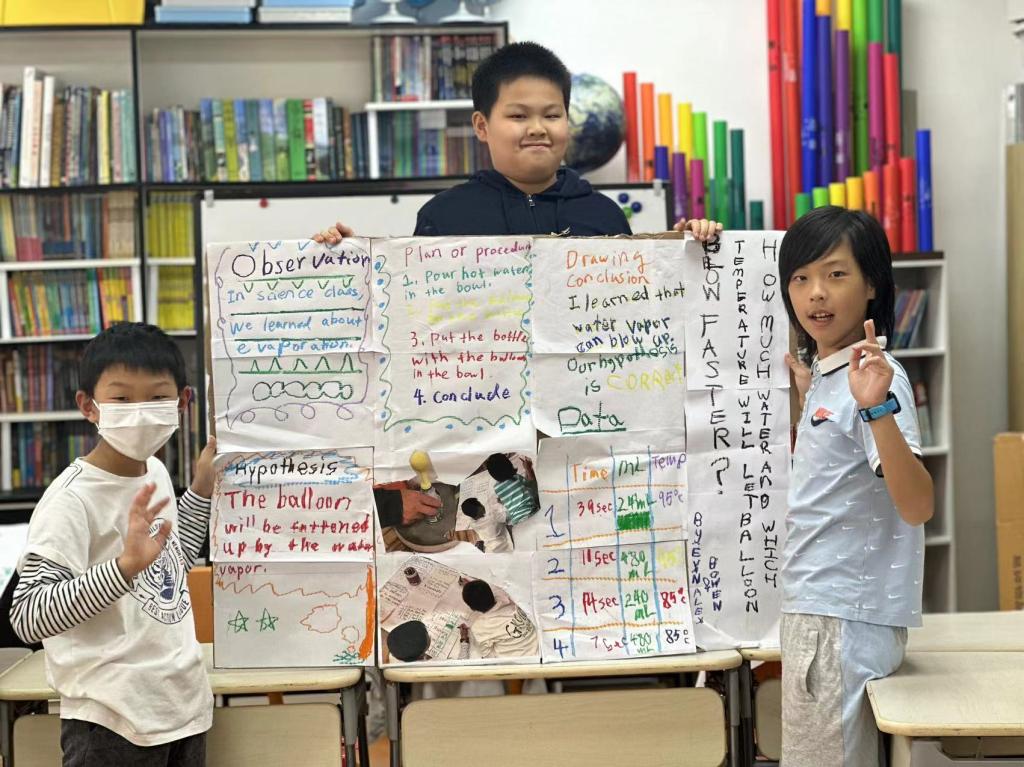 Observation
In science class,
we learned about
evaporation.
Hypothesis
The balloon
will be fattened
up by the water
vapor.
Plan or procedure
1. Pour hot water
in the bowl.
3. Put the bottle
with the balloon
in the bowl.
4. Conclude
Drawing
Conclusion
I learned that
water vapor
can blow up.
Our hypothesis
is CORRECT
Data
Time mL Temp
1 39sec 24mL 95°c
2 11sec 480 mL
3 14sec 240 mL 85°c
4 7sec 480 mL 85°c
HOW MUCH WATER AND WHICH
TEMPERATURE WILL LET BALLOON
BLOW FASTER?